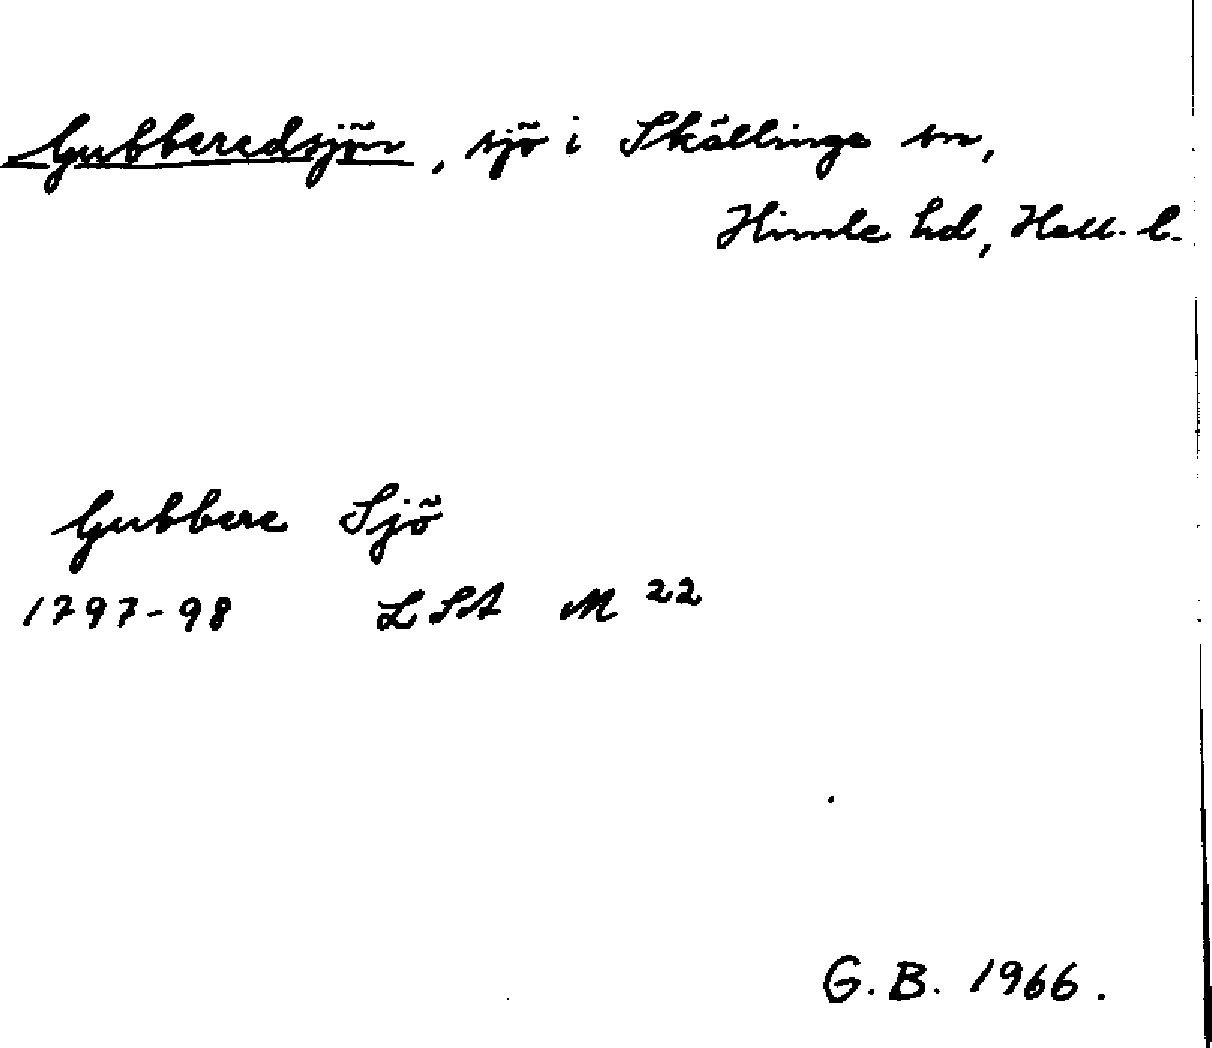 Gubberedsjön, sjö i Skällinge sn,
Himle hd, Hall. l.
Gubbere Sjö
1797-98 LSA M 22
G. B. 1966.